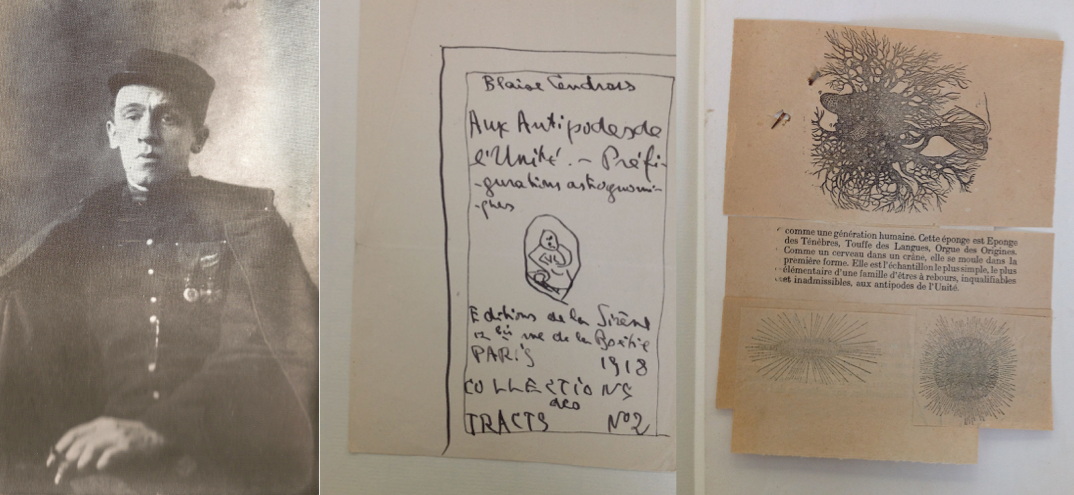 Blaise Cendrars
Aux Antipodes de
l'Unité. – Préfi-
-gurations astrognomi-
-ques
Editions de la Sirène
12 bis rue de la Boétie
PARIS 1918
COLLECTIONS
des
TRACTS Nº2
comme une génération humaine. Cette éponge est Eponge
des Ténèbres, Touffe des Langues, Orgue des Origines.
Comme un cerveau dans un crâne, elle se moule dans la
première forme. Elle est l'échantillon le plus simple, le plus
élémentaire d'une famille d'êtres à rebours, inqualifiables
et inadmissibles, aux antipodes de l'Unité.